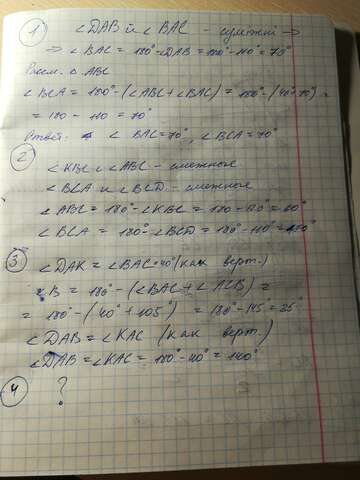 1 ∠DAB и ∠BAC - сумежні ⇒
⇒ ∠BAC = 180°-DAB = 180°-110° = 70°
Рассм. Δ ABC
∠BCA = 180° - (∠ABC + ∠BAC) = 180° - (40°+70°) =
= 180 - 110 = 70°
Ответ. ∠ BAC = 70°, ∠BCA = 70°
2 ∠KBC и ∠ABC - смежные
∠BCA и ∠BCD - смежные
∠ABC = 180° - ∠KBC = 180 - 120° = 60°
∠BCA = 180° - ∠BCD = 180° - 110° =
3 ∠DAK = ∠BAC = 40° (как верт.)
∠B = 180° - (∠BAC + ∠ACB) =
= 180° - (40° + 105°) = 180° - 145° = 35°
∠DAB = ∠KAC (как верт.)
∠DAB = ∠KAC = 180° - 40° = 140°
4 ?